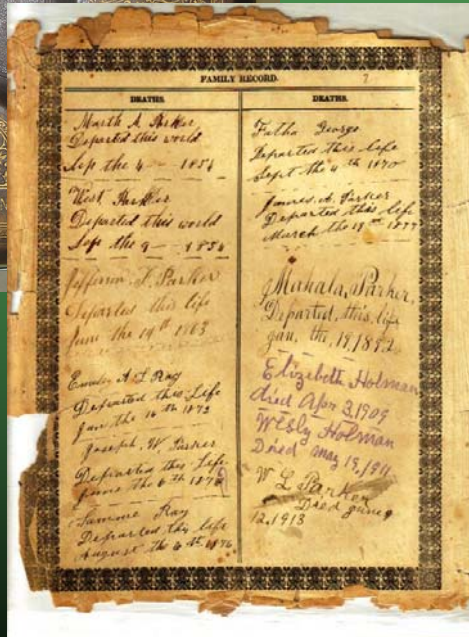 FAMILY RECORD.
DEATHS.
Marth A Parker
Departed this world
Sep the 4 — 1854
West Parker
Departed this world
Sep the 9 — 1854
Jefferson F. Parker
Departed this life
June the 19th 1863
Emily A L Ray
Departed this Life
Jan the 16 th 1873
Joseph W. Parker
Departed this Life
June the 6th 187
Sammie Ray
Departed thy life
August the 6th 1876
DEATHS.
Fatha George
Departed this Life
Sept the 4 th 1870
James A. Parker
Departed this life
March the 18 th 1877
Mahala, Parker,
Departed, this, life
Jan, the, 19, 1892
Elizebeth Holman
died Apr 3, 1909
Wesly Holman
Died may 19, 1911
W L Parker
Died June
12, 1913